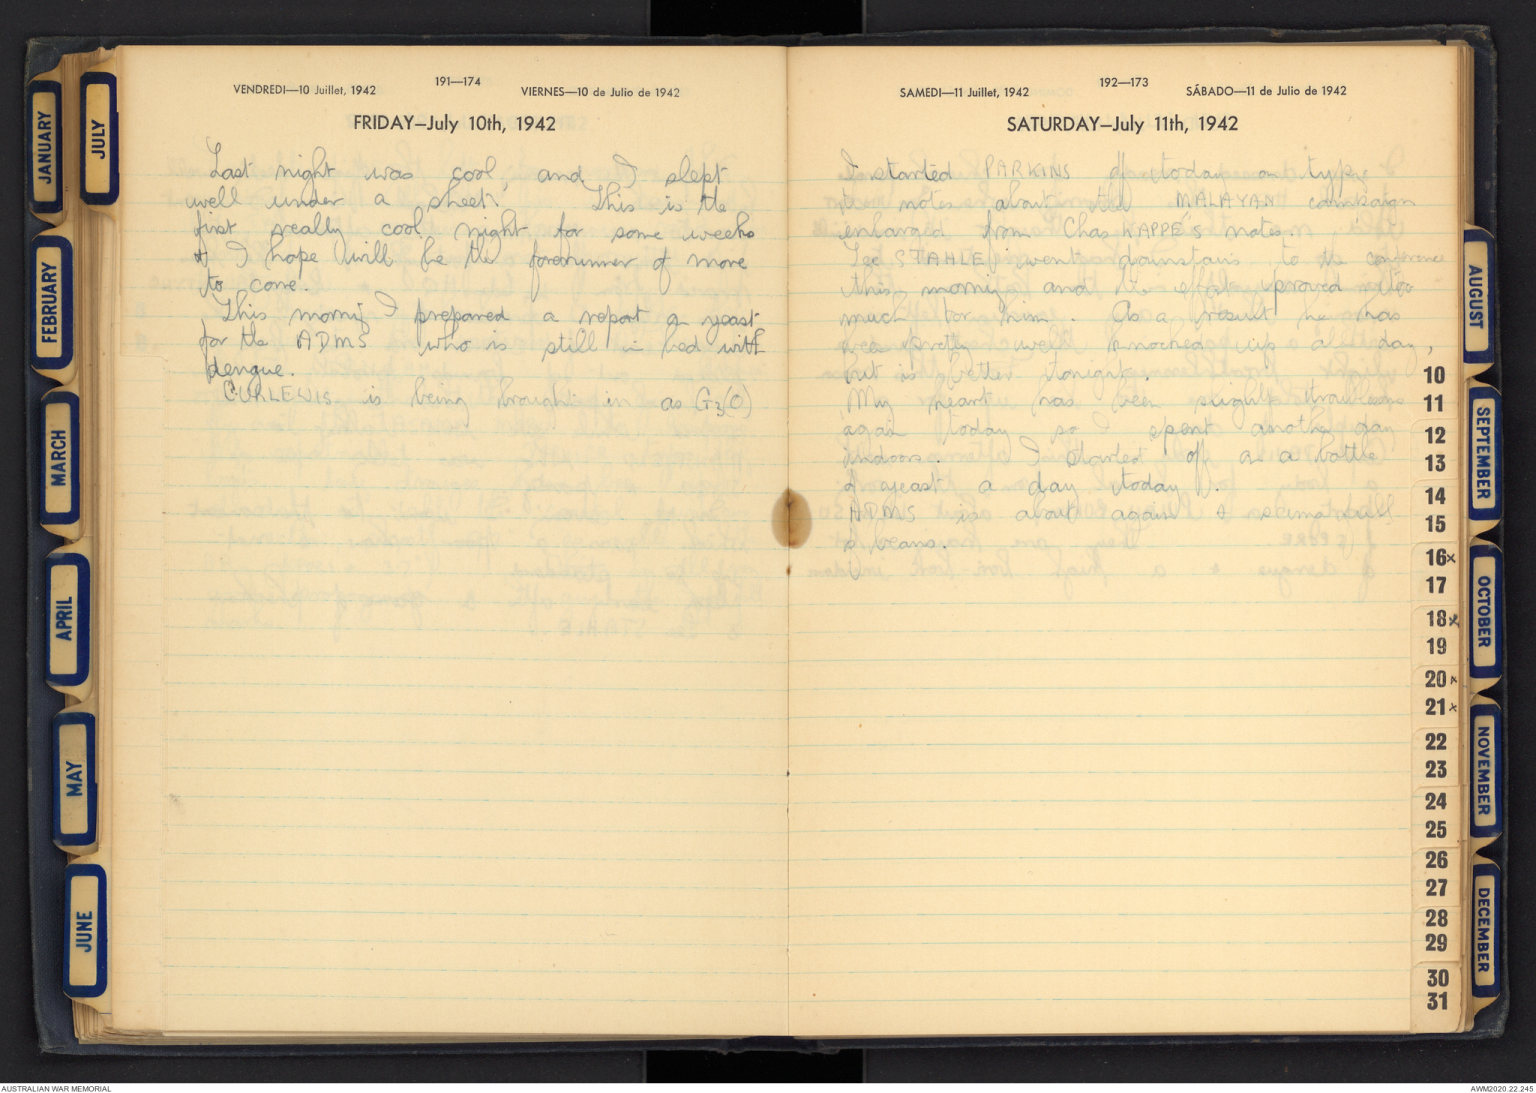 VENDREDI—10 Juillet, 1942
191—174
VIERNES—10 de Julio de 1942
FRIDAY—July 10th, 1942
Last night was cool, and I slept
well under a sheet. This is the
first really cool night for some weeks
& I hope will be the forerunner of more
to come.
This morning I prepared a report on yeast
for the ADMS who is still in bed with
dengue.
CURLEWIS is being brought in as G3(O)
SAMEDI—11 Juillet, 1942
192—173
SÁBADO—11 de Julio de 1942
SATURDAY—July 11th, 1942
I started PARKINS off today on typing
the notes about the MALAYAN campaign
enlarged from Chas KAPPE'S notes.
Lee STAHLE went downstairs to the conference
this morning and the effort proved too
much for him. As a result he has
been pretty well knocked up all day,
but is better tonight.
My heart has been slightly troublesome
again today so I spent another day
indoors. I started off on a bottle
of yeast a day today.
ADMS is about again &
beans.
JANUARY
FEBRUARY
MARCH
APRIL
MAY
JUNE
JULY
AUGUST
SEPTEMBER
OCTOBER
NOVEMBER
DECEMBER
10
11
12
13
14
15
16x
17
18x
19
20x
21x
22
23
24
25
26
27
28
29
30
31
AUSTRALIAN WAR MEMORIAL
AWM2020.22.245